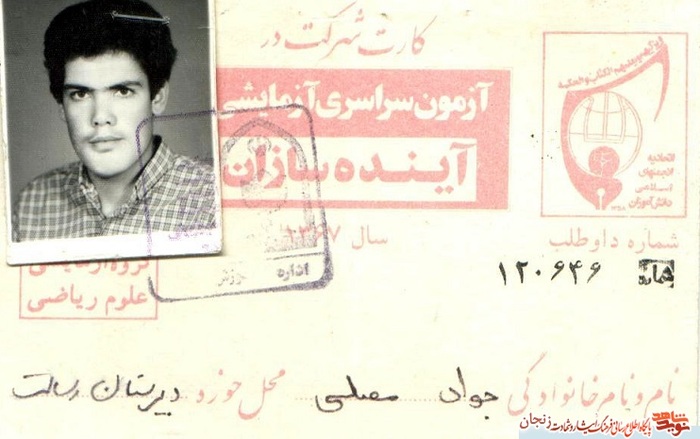 کارت شرکت در
آزمون سراسری آزمایشی
آینده سازان
سال ۱۳۶۷
اتحادیه
انجمنهای
اسلامی
دانش‌آموزان
شماره داوطلب
۱۲۰۶۴۶
گروه آزمایشی
علوم ریاضی
اداره
نام و نام خانوادگی جواد مصلحی محل حوزه دبیرستان رسالت
نوید شاهد
پایگاه اطلاع رسانی فرهنگ ایثار و شهادت زنجان